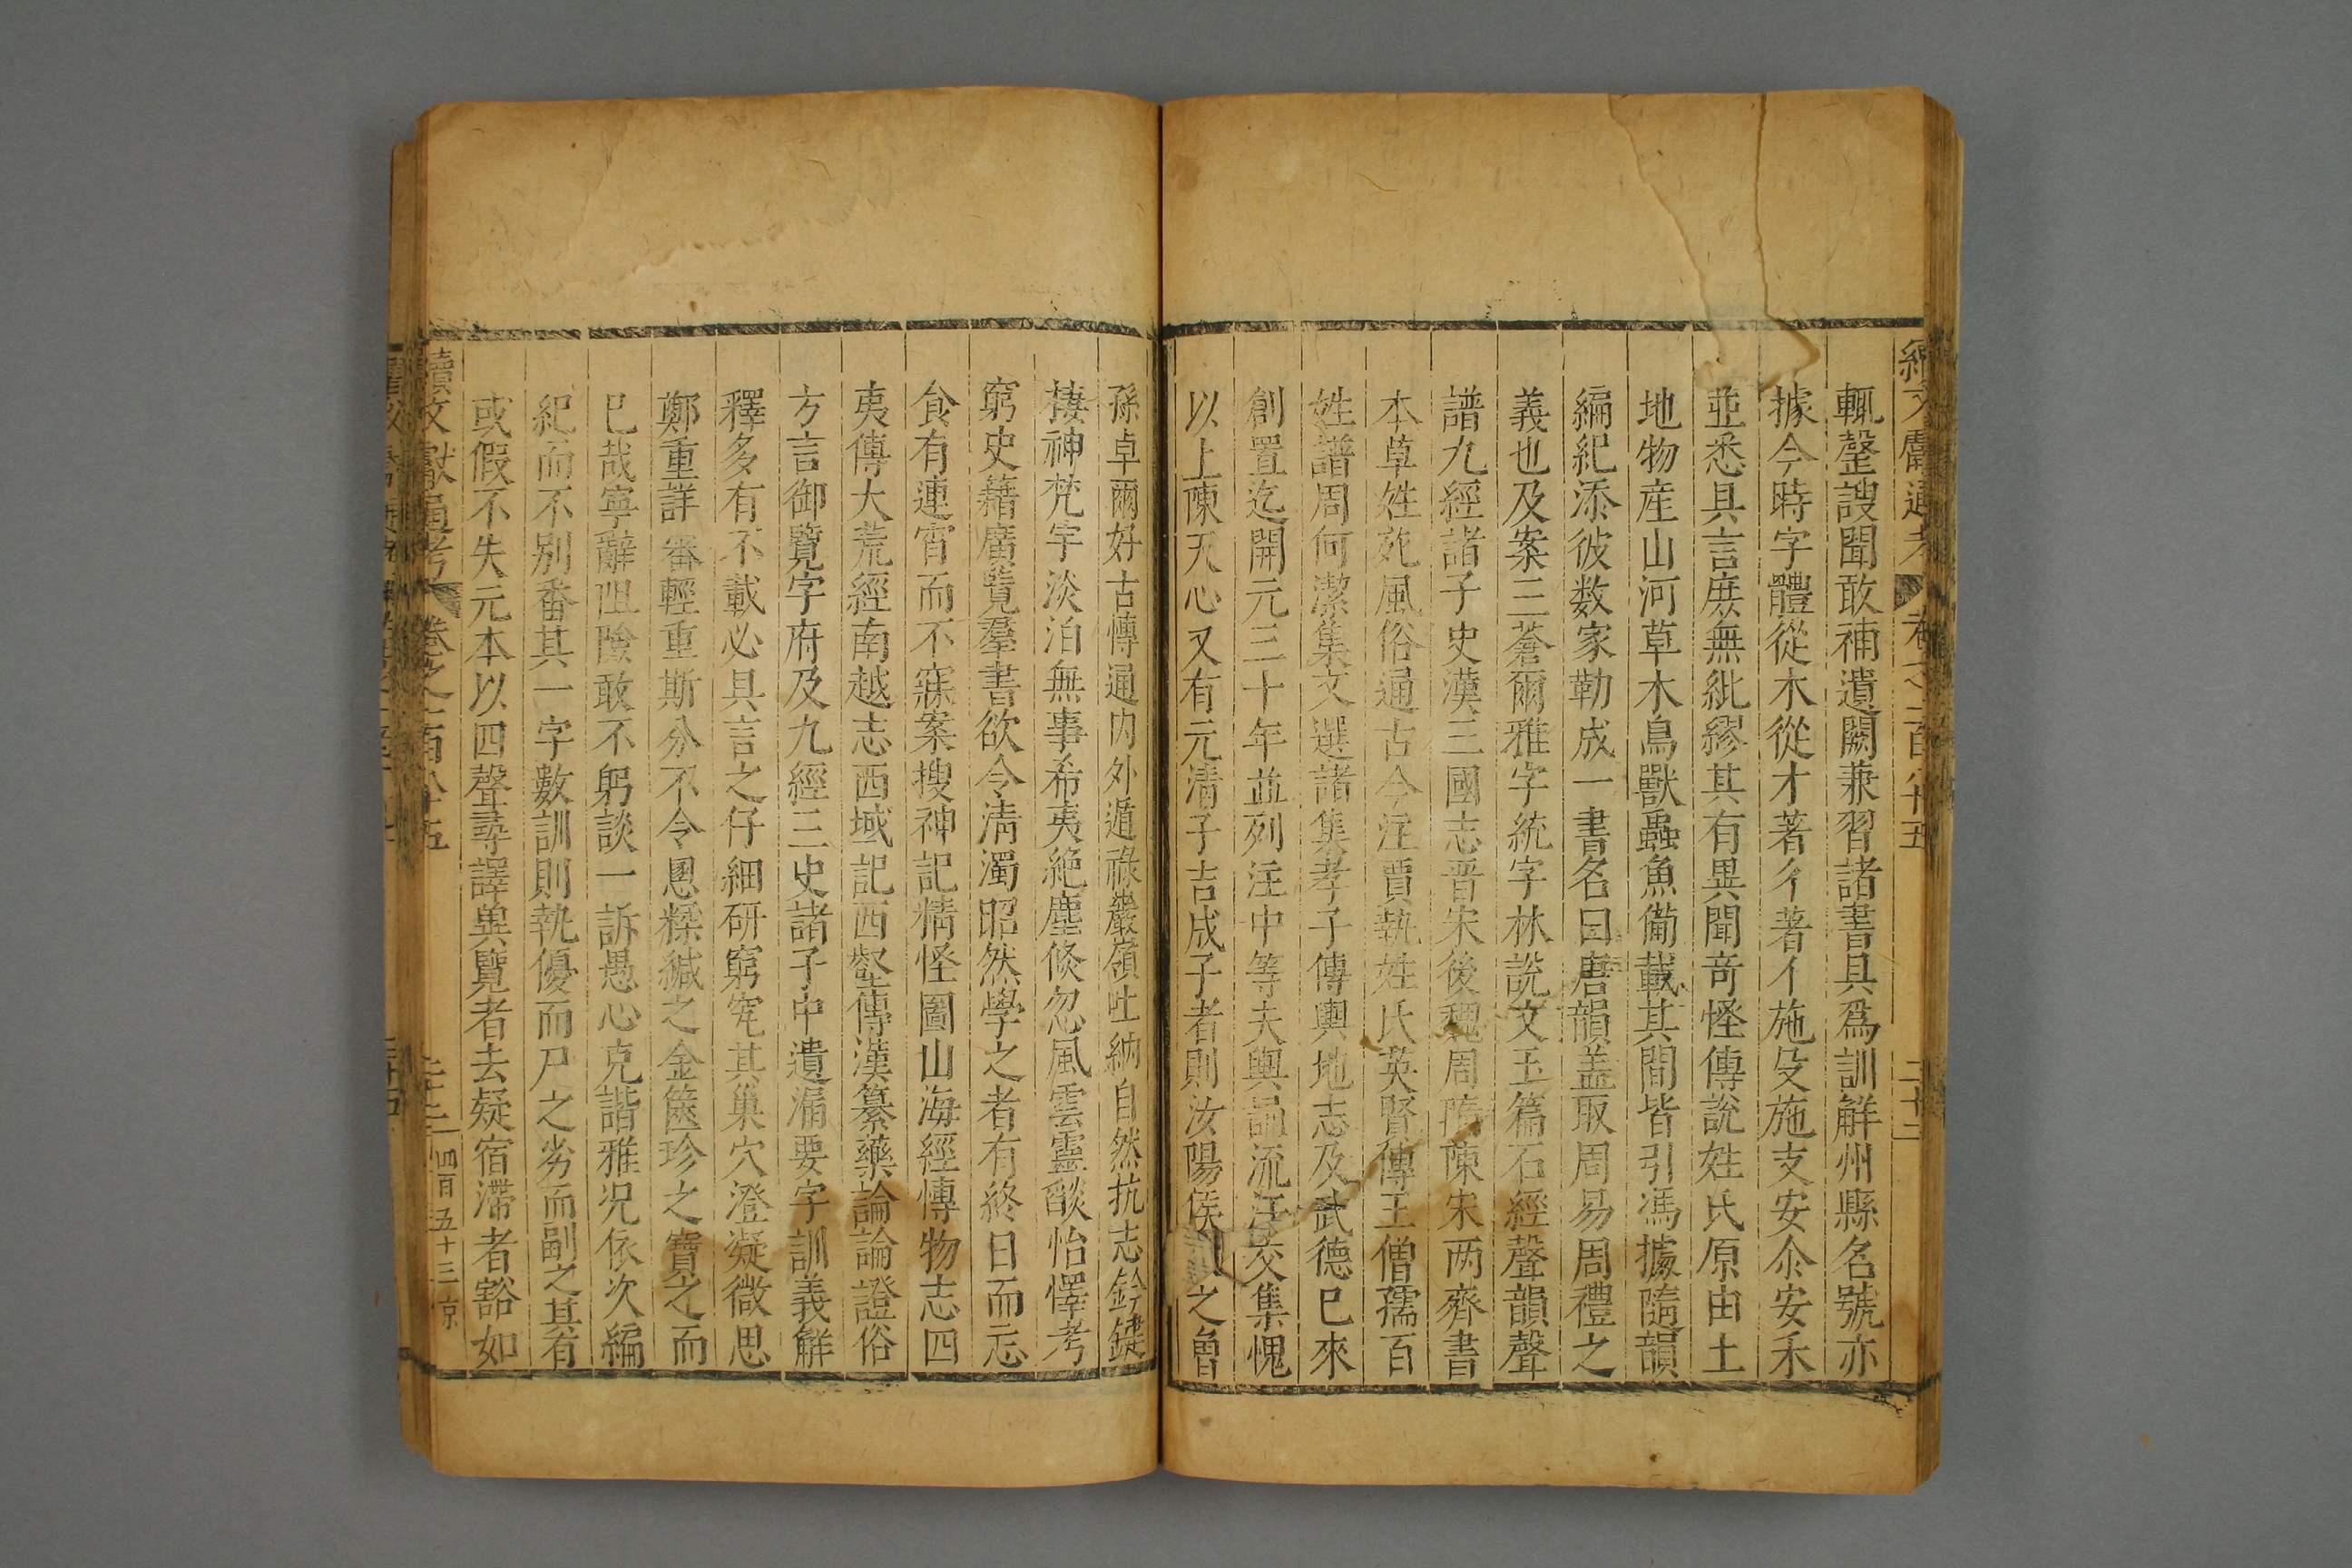 續文獻通考 卷之一百八十五 二十三
輒罄謏聞敢補遺闕兼習諸書具爲訓解州縣名號亦
據今時字體從木從才著彳著亻施殳施攴安尒安禾
並悉具言庶無紕繆其有異聞奇怪傳說姓氏原由土
地物産山河草木鳥獸蟲魚備載其間皆引馮據隨韻
編紀添彼数家勒成一書名曰唐韻盖取周易周禮之
義也及案三蒼爾雅字統字林說文玉篇石經聲韻聲
譜九經諸子史漢三國志晋宋後魏周隋陳宋两齊書
本草姓苑風俗通古今注賈執姓氏英賢傳王僧孺百
姓譜周何潔集文選諸集孝子傳輿地志及武德已來
創置迄開元三十年並列注中等夫輿誦流汪交集愧
以上陳天心又有元淸子吉成子者則汝陽侯之曾
孫卓爾好古愽通内外遁祿巖嶺吐納自然抗志鈐鍵
棲神梵宇淡泊無事希夷絶塵倏忽風雲靈䤧怡懌考
窮史籍廣覽羣書欲令淸濁昭然學之者有終日而忘
食有連宵而不寐案搜神記精怪圖山海經愽物志四
夷傳大荒經南越志西域記西壑傳漢纂藥論論證俗
方言御覽字府及九經三史諸子中遺漏要字訓義解
釋多有不載必具言之仔細研窮究其巢穴澄凝微思
鄭重詳審輕重斯分不令慁糅緘之金篋珍之寶之而
已哉寧辭阻險敢不躬談一訴愚心克諧雅况依次編
紀而不別番其一字數訓則執優而尸之劣而副之其有
或假不失元本以四聲尋譯兾覽者去疑宿滯者豁如
續文獻通考 卷之一百八十五 二十三 四百五十三 京